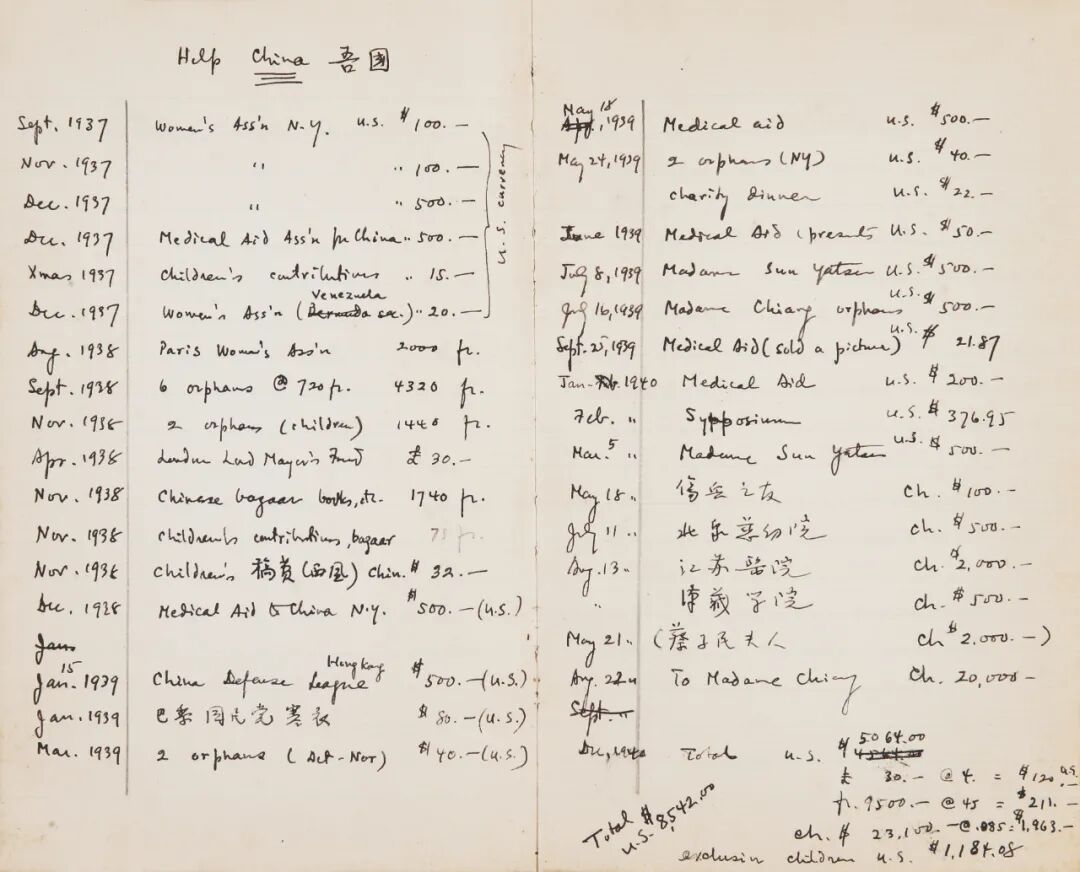 Help China 吾國
Sept. 1937 Women's Ass'n N.Y. U.S. $100.—
Nov. 1937 " " 100.—
Dec. 1937 " " 500.—
Dec. 1937 Medical Aid Ass'n for China " 500.—
Xmas 1937 Children's contributions " 15.—
Venezuela
Dec. 1937 Women's Ass'n (Bermuda sec.) " 20.—
U.S. currency
Aug. 1938 Paris Women's Ass'n 2000 fr.
Sept. 1938 6 orphans @ 720 fr. 4320 fr.
Nov. 1938 2 orphans (children) 1440 fr.
Apr. 1938 London Lord Mayor's Fund £ 30.—
Nov. 1938 Chinese bazaar books, etc. 1740 fr.
Nov. 1938 Children's contributions, bazaar fr.
Nov. 1938 Children's 稿費(西風) Chin. $ 32.—
Dec. 1938 Medical Aid to China N.Y. $500.—(U.S.)
Jan.
15 Hong Kong
Jan. 1939 China Defense League $500.—(U.S.)
Jan. 1939 巴黎國民党寒衣 $ 80.—(U.S.)
Mar. 1939 2 orphans (Oct-Nov) $40.—(U.S.)
May 18
Apr., 1939 Medical aid U.S. $500.—
May 24, 1939 2 orphans (NY) U.S. $40.—
charity dinner U.S. $22.—
June 1939 Medical Aid (presents U.S. $50.—
July 8, 1939 Madame Sun Yatsen U.S. $500.—
July 16, 1939 Madame Chiang orphans U.S. $500.—
Sept. 25, 1939 Medical Aid (sold a picture) U.S. $ 21.87
Jan-Feb. 1940 Medical Aid U.S. $200.—
Feb. " Symposium U.S. $376.95
Mar. 5 " Madame Sun Yatsen U.S. $500.—
May 18 " 傷兵之友 Ch. $100.—
July 11 " 北泉慈幼院 Ch. $500.—
Aug. 13 " 江苏醫院 Ch. $2,000.—
" 学院 Ch. $500.—
May 21 " (蔡孑民夫人 Ch $2.000.—)
Aug. 22 " To Madame Chiang Ch. 20,000—
Sept. "
Dec, 1940 Total U.S. $5064.00
£ 30.— @ 4. = $120 U.S.
fr. 9500.— @ 45 = $211.—
Ch. $ 23,100.—@.085=$1,963.—
Total $
U.S. 8,542.00
exclusive children U.S. $1,184.08